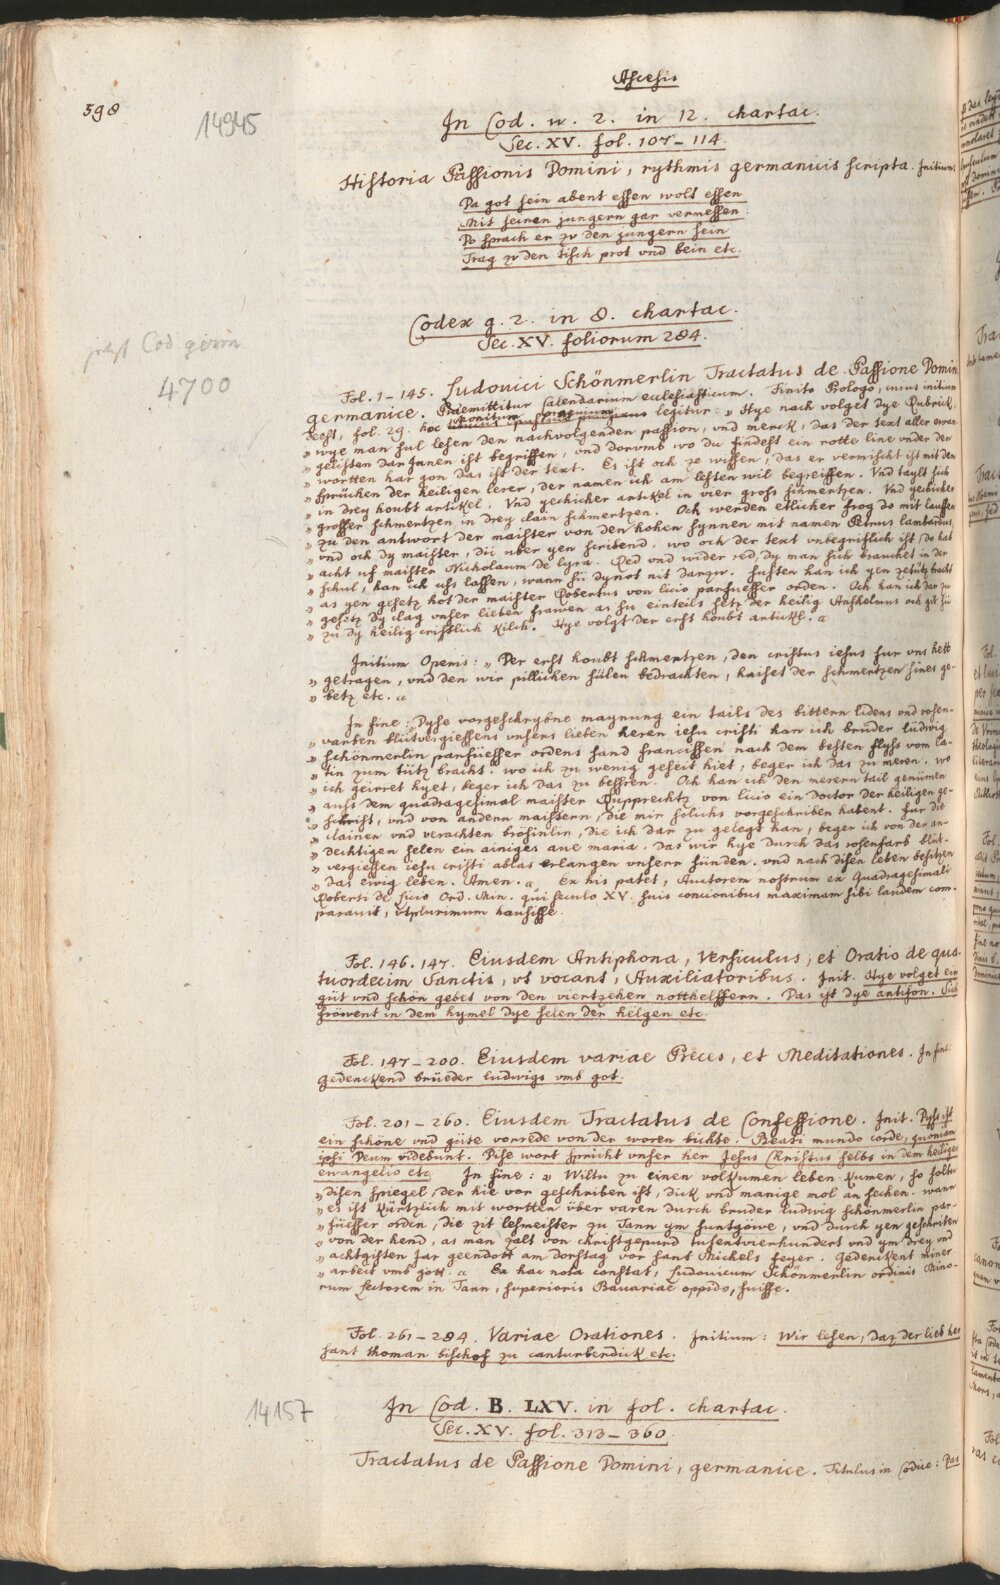 Ascesis
598
14945
In Cod. w. 2. in 12. chartac.
Sec. XV. fol. 107–114.
Historia Passionis Domini, rythmis germanicis scripta. Initium:
Da got sein abent essen wolt essen
Mit seinen jungern gar vermessen
Do sprach er zv den jungern sein
Trag zv den tisch prot vnd bein etc.
Codex g. 2. in 8. chartac.
Sec. XV. foliorum 284.
jetzt Cod. germ.
4700
Fol. 1–145. Ludovici Schönmerlin Tractatus de Passione Domini
germanice. Praemittitur Calendarium ecclesiasticum. Finito Prologo, cuius initium
deest, fol. 29. hoc monitum legitur: „ Hye nach volget dye Rubrick,
„ wye man sul lesen den nachvolgenden passion, vnd merck, das der text aller ewan-
„ gelisten darjnnen ist begriffen, vnd dorvmb wo du findest ein rotte line vnder den
„ wortten har gon das ist der text. Es ist och ze wissen, das er vermischt ist mit den
„ sprüchen der heiligen lerer, der namen ich am lesten wil begreiffen. Vnd taylt sich
„ in drey houbt artikel. Vnd yeclicher artikel in vier gross schmertzen. Vnd yeclicher
„ grosser schmertzen in drey clain schmertzen. Och werden etlicher frog do mit lauffen
„ zu den antwort der maister von den hohen synnen mit namen Petrus lambardus,
„ vnd och dy maister, dii uber yen scribend. wo och der text vnbegriflich ist, do hab
„ acht uf maister Nicholaum de lyra. Red vnd wider red, dy man sich brauchet in der
„ schul, han ich uss lassen, wann sii dynot nit darzu. Susten han ich yen zetütz bracht
„ as yen gesetz hot der maister Robertus von licio parfuesser orden. Och han ich dar zu
„ gesetz dy clag vnser lieben frawen as su einteils setz der heilig Anshelmus och git sü
„ zu dy heilig cristlich kilch. Hye volgt der erst houbt artickl. “
Initium Operis: „ Der erst houbt schmertzen, den cristus iesus fur vns hett
„ getragen, vnd den wir pillichen sülen bedrachten, haiset der schmertzen sines ge-
„ betz etc. “
In fine: „ Dyse vorgeschrybne maynung ein tails des bittern lidens vnd rosen-
„ varben blütvergiessens vnsers lieben heren iesu cristi han ich bruder ludwig
„ schönmerlin parfüesser ordens sand francissen nach dem besten flyss vom la-
„ tin zum tütz bracht. wo ich zu wenig geseit hiet, beger ich das zu meren. wo
„ ich geirret hyet, beger ich das zu bessren. Och han ich den merern tail genümen
„ auss dem quadragesimal maister Rupprechtz von licio ein doctor der heiligen ge-
„ schrift, vnd von andern maistern, die mir solichs vorgeschriben habent. Fur die
„ clainen vnd verachten brösinlin, die ich dar zu gelegt han, beger ich von der an-
„ dechtigen selen ein ainiges aue maria. das wir hye durch das rosenfarb blüt-
„ vergiessen iesu cristi ablas erlangen vnsern sünden. vnd nach disen leben besitzen
„ das ewig leben. Amen. “ Ex his patet, Auctorem nostrum ex Quadragesimali
Roberti de Licio Ord. Min. qui seculo XV. suis concionibus maximam sibi laudem com-
parauit, vtplurimum hausisse.
Fol. 146. 147. Eiusdem Antiphona, Versiculus, et Oratio de qua-
tuordecim Sanctis, vt vocant, Auxiliatoribus. Init. Hye volget ein
güt vnd schön gebet von den viertzehen notthelffern. Das ist dye antifon. Sich
fröwent in dem hymel dye selen der helgen etc.
Fol. 147–200. Eiusdem variae Preces, et Meditationes. In fine:
gedenckend brüeder ludwigs vmb got.
Fol. 201–260. Eiusdem Tractatus de Confessione. Init. Dyss ist
ein schöne vnd güte vorrede von der woren bichte. Beati mundo corde, quoniam
ipsi Deum videbunt. Dise wort spricht vnser her Jesus Christus selbs in dem heiligen
ewangelio etc. In fine: „ Wiltu zu einen volkumen leben kumen, so soltu
„ disen spiegel, der hie vor geschriben ist, dick vnd manige mol an sechen. wann
„ es ist kürtzlich mit wortten über varen durch bruder ludwig schönmerlin par-
„ füesser orden, die zit lesmeister zu Tann ym suntgöwe, vnd durch yen geschriben
„ von der hend, as man zalt von christgepurd tusentvierhundert vnd ym drey vnd
„ achtzisten jar geendott am dorstag vor sant Michels feyer. Gedenckent miner
„ arbeit vmb gott. “ Ex hac nota constat, Ludouicum Schönmerlin ordinis Mino-
rum Lectorem in Tann, superioris Bauariae oppido, fuisse.
Fol. 261–284. Variae Orationes. Initium: Wir lesen, daz der lieb her
sant thoman bischof zu canturberdick etc.
14157
In Cod. B. LXV. in fol. chartac.
Sec. XV. fol. 313–360.
Tractatus de Passione Domini, germanice. Titulus in Codice: Das